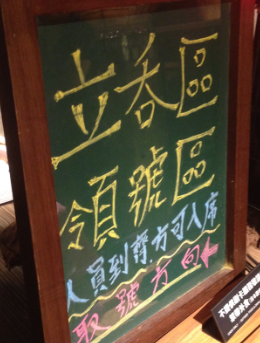 立吞區
領號區
人員到齊方可入席
取號方向←